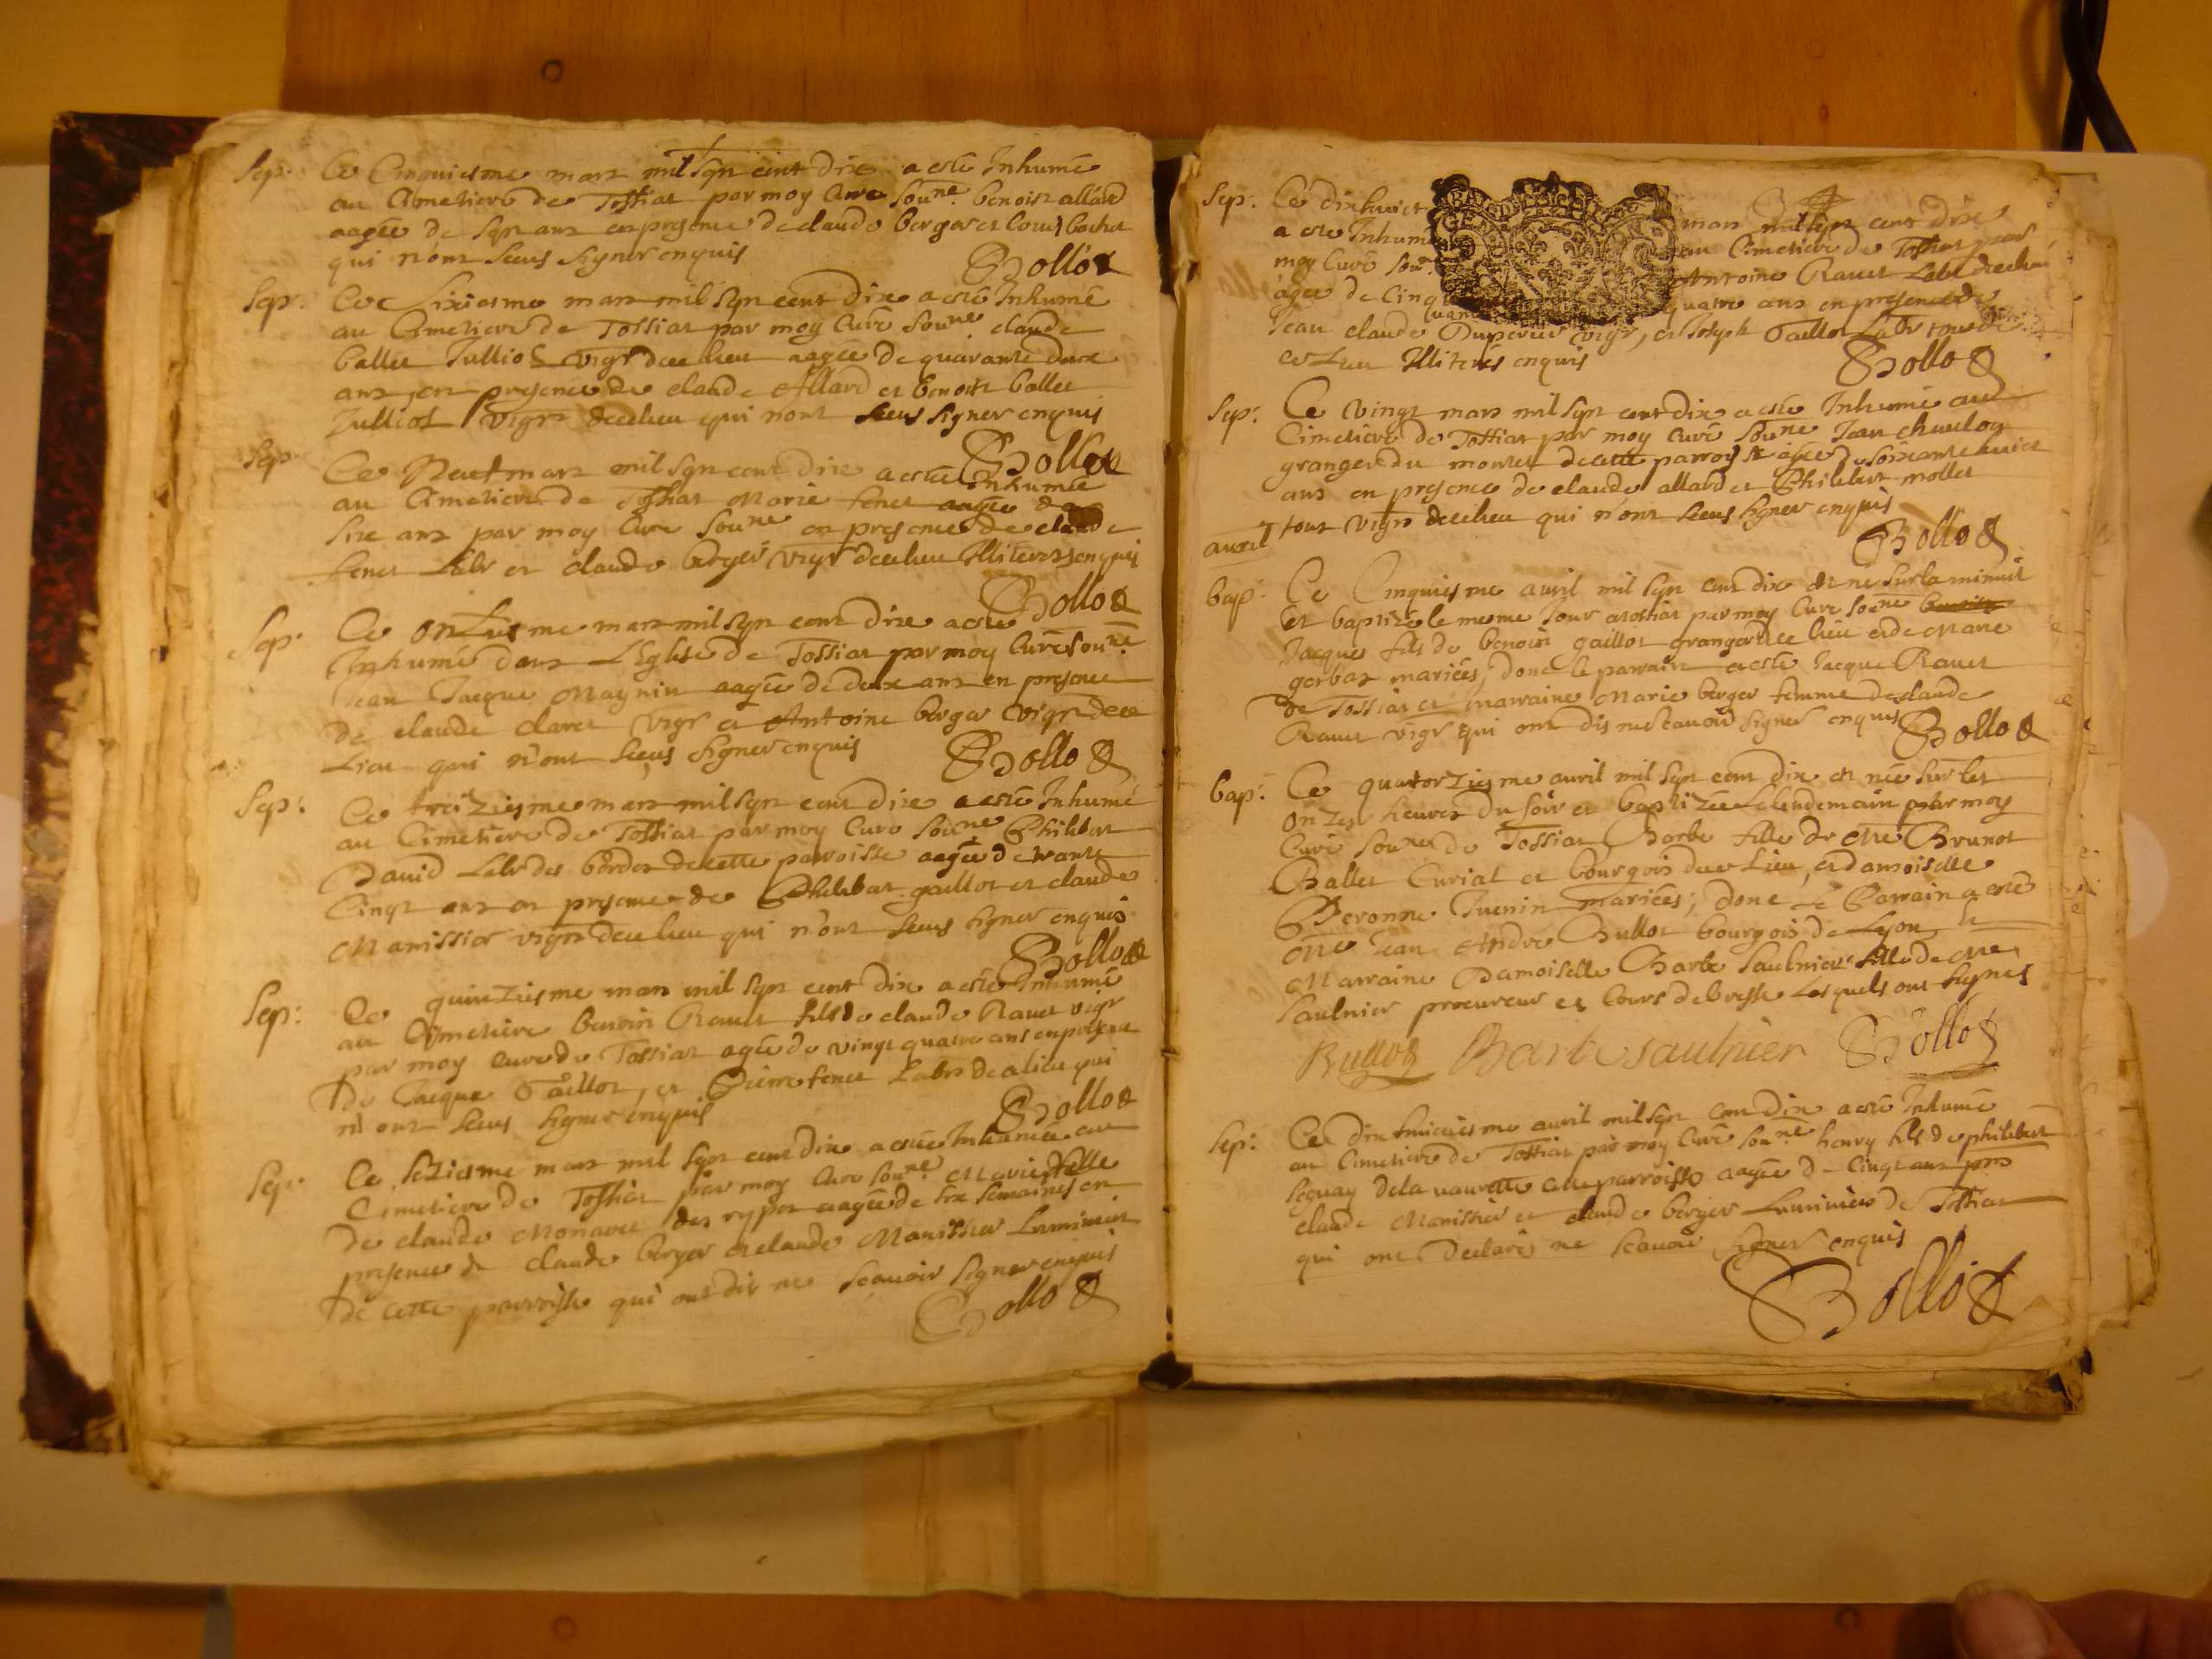 Sep: Ce Cinquiesme mars mil sept cent dix a esté Inhumé
au Cimetiere de Tossiat par moy Curé soune. benoist allard
aagée de sept ans en presence de claude berger et Louis bochet
qui n'ont sceus signer enquis Bollod
Sep: Ce Sixiesme mars mil sept cent dix a esté Inhumé
au Cimetiere de Tossiat par moy Curé soune claude
ballet Julliot vigr ducelieu aagée de quarante deux
ans, en presence de claude Allard et benoist ballet
Julliot vigrs decelieu qui n'ont sceus signer enquis
Bollod
Sep: Ce Neuf mars mil sept cent dix a estée Inhumée
au Cimetiere de Tossiat Marie fenet aagée de
sixe ans par moy Curé soune en presence de claude
fenet Labr et claude berger vigr decelieu Illiteres enquis
Bollod
Sep: Ce onziesme mars mil sept cent dix a esté
Inhumé dans L'Eglise de Tossiat par moy Curé soune
Jean Jacque Maynin aagée de deux ans en presence
de claude claret vigr et Antoine berger vigr dece
Lieu qui n'ont sceus signer enquis Bollod
Sep: Ce treiziesme mars mil sept cent dix a esté Inhumé
au Cimetiere de Tossiat par moy Curé soune Philibert
David Labr des bordes de cette parroisse aagée de trante
Cinqt ans en presence de Philibert gaillot et claude
Manissier vigrs decelieu qui n'ont sceus signer enquis
Bollod
Sep: Ce quinziesme mars mil sept cent dix a esté Inhumé
au Cymetiere benoist Ravet fils de claude Ravet vigr
par moy Curé de Tossiat agée de vingt quatre ans en presence
de Jacque Gaillot, et Pierre fenet Labrs de ce lieu qui
n'ont sceus signer enquis Bollod
Sep: Ce seziesme mars mil sept cent dix a estée Inhumée au
Cimetiere de Tossiat par moy Curé soune Marie fille
de claude Monavet des rypes aagée de six semaines en
presence de claude berger et claude Manissier Luminiers
de cette parroisse qui ont dit ne sçavoir signer enquis
Bollod
Sep: Ce dixhuict mars mil sept cent dix
a esté Inhumé au Cimetiere de Tossiat par
moy Curé soune Antoine Ravet Labr
agée de Cinquante quatre ans en presence de
Jean claude Duperier vigr, et Joseph Gaillot Labr tous de
ce Lieu Illiterés enquis Bollod
Sep: Ce vingt mars mil sept cent dix a esté Inhumé aud
Cimetiere de Tossiat par moy Curé soune Jean
granger du montet de cette parroisse agée de soixante huict
ans en presence de claude allard et Philibert mollet
tous vigrs decelieu qui n'ont sceus signer enquis
avril Bollod
bap: Ce Cinquiesme avril mil sept cent dix est né sur la minuit
et baptizé le mesme Jour a tossiat par moy Curé soune
Jacque fils de benoist gaillot granger dece lieu et de Marie
gerbaz mariés; dont le parrain a esté Jacque Ravet
de Tossiat et marraine Marie berger femme de claude
Ravet vigr qui ont dis ne sçavoir signer enquis Bollod
bap: Ce quatorziesme avril mil sept cent dix est née sur les
onzes heures du soir et baptizée Le lendemain par moy
Curé soune de Tossiat Barbe fille de Me Brunot
Ballet Curial et bourgois dece Lieu, et damoiselle
Peronne Juenin mariées; dont Le Parrain a esté
Me Jean Andre Bullot bourgois de Lyon, la
Marraine Damoiselle Barbe saulnier fille de Me
saulnier procureur es Cours de bresse Lesquels ont signés
Bullod Barbe saulnier Bollod
Sep: Ce dixhuictiesme avril mil sept cent dix a esté Inhumé
au Cimetiere de Tossiat par moy Curé soune henry fils de philibert
seguay de la vavrette parroisse aagée de Cinqt ans pnts
claude Manissier et claude berger Luminiers de Tossiat
qui ont declarés ne sçavoir signer enquis
Bollod